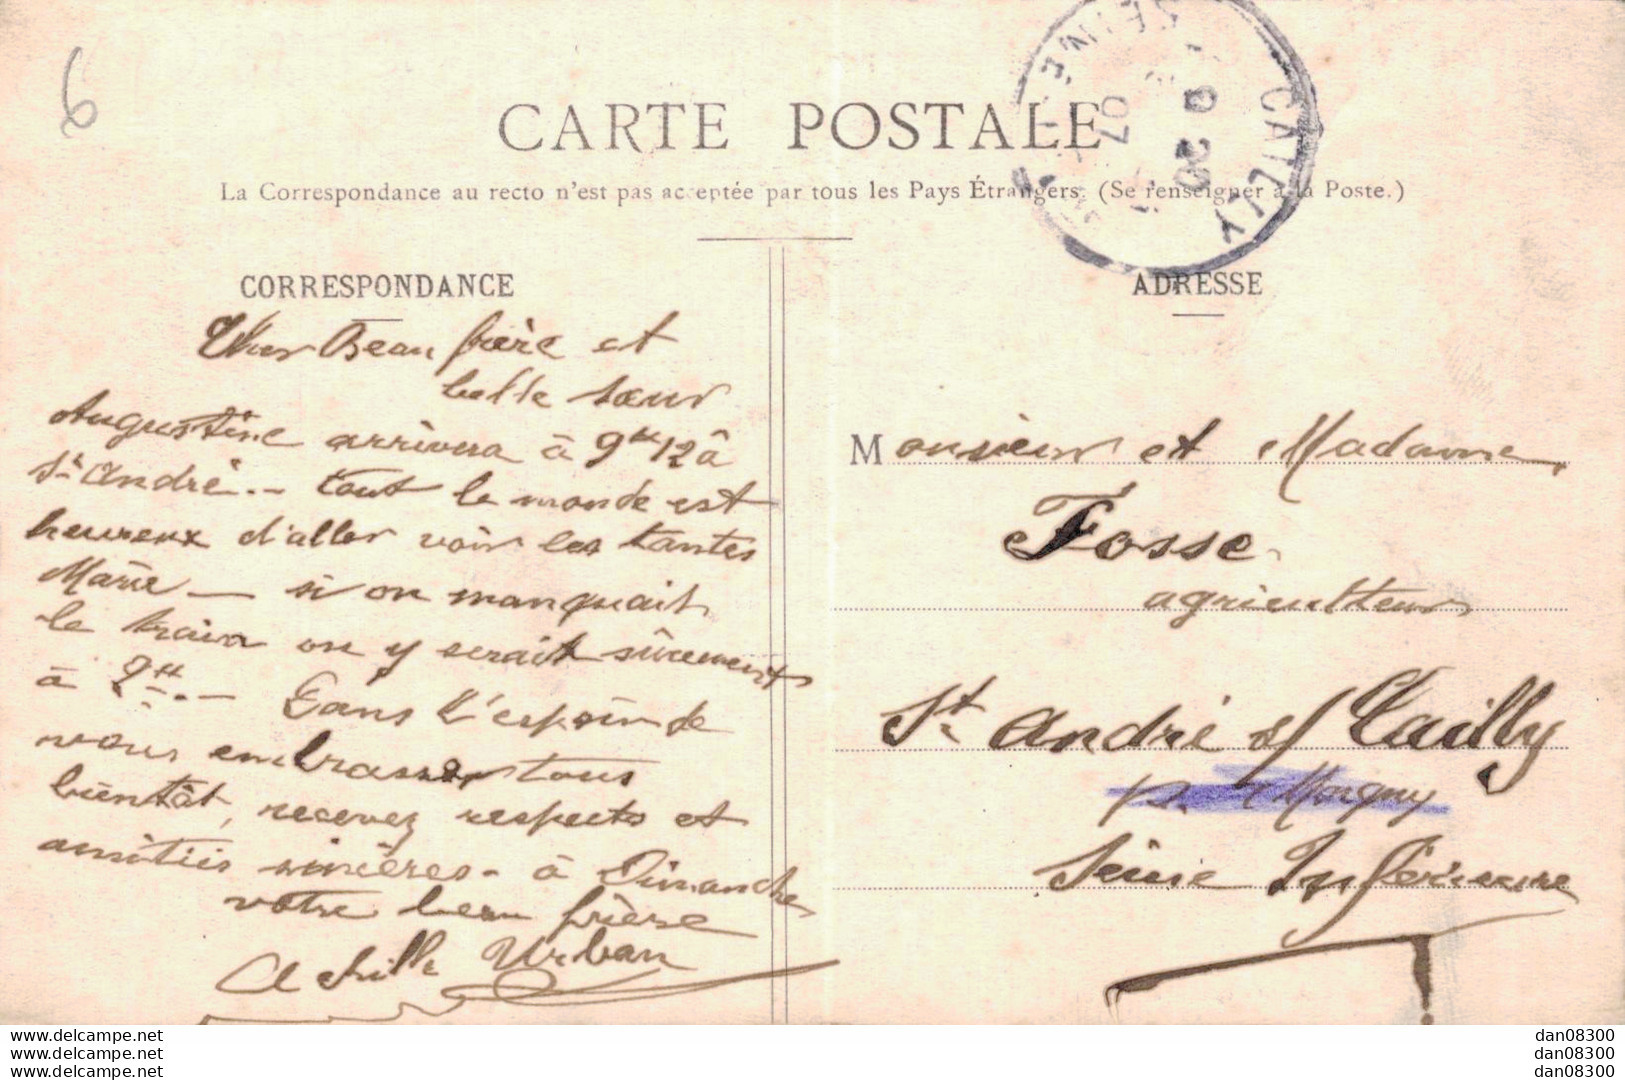 6
CARTE POSTALE
La Correspondance au recto n'est pas acceptée par tous les Pays Étrangers. (Se renseigner à la Poste.)
CAILLY
SEINE
20
07
CORRESPONDANCE
Cher Beau frère et
belle sœur
Augustine arrivera à 9h 12 à
St André. - tout le monde est
heureux d'aller voir les tantes
Marie — si on manquait
le train on y serait sûrement
à 2H. - Dans l'espoir de
vous embrasser tous
bientôt, recevez respects et
amitiés sincères - à Dimanche
votre beau frère
Achille Urban
ADRESSE
Monsieur et Madame
Fosse
agriculteurs
St André s/ Cailly
p. Morgny
Seine Inférieure
www.delcampe.net
www.delcampe.net
www.delcampe.net
dan08300
dan08300
dan08300